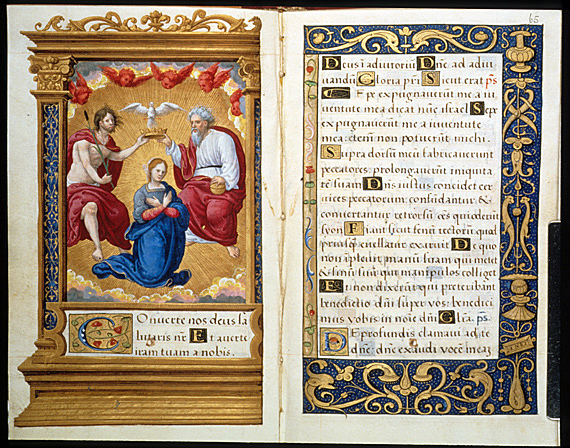 Onverte nos deus sa
lutaris nr̄ Et averte
iram tuam a nobis.
65
Deus ī adiutoriū Dn̄e ad adiu
uandū Gloria pr̄i Sicut erat ps̄
Sepe expugnauerūt me a iu
uentute mea dicat nūc israel Sepe
expugnauerūt me a iuuentute
mea eteni non potuerūt michi.
Supra dorsū meū fabricauerunt
peccatores: prolongarerunt iniquita
tē suam Dn̄s iustus concidet cer
uices peccatorum: confūdantur &
convertantur retrorsū oēs qui oderūt
syon Fiant sicut fenū tectorū quod
priusq̄ euellatur exaruit De quo
non īpleuit manū suam qui metit
& sinū suū qui manipulos colliget
Et nō dixerūt qui preteribant
benedictio dn̄i super vos: benedixi
mus vobis in noīe dn̄i Glīa. ps̄.
De profundis clamaui ad te
dn̄e: dn̄e exaudi vocē meaȝ